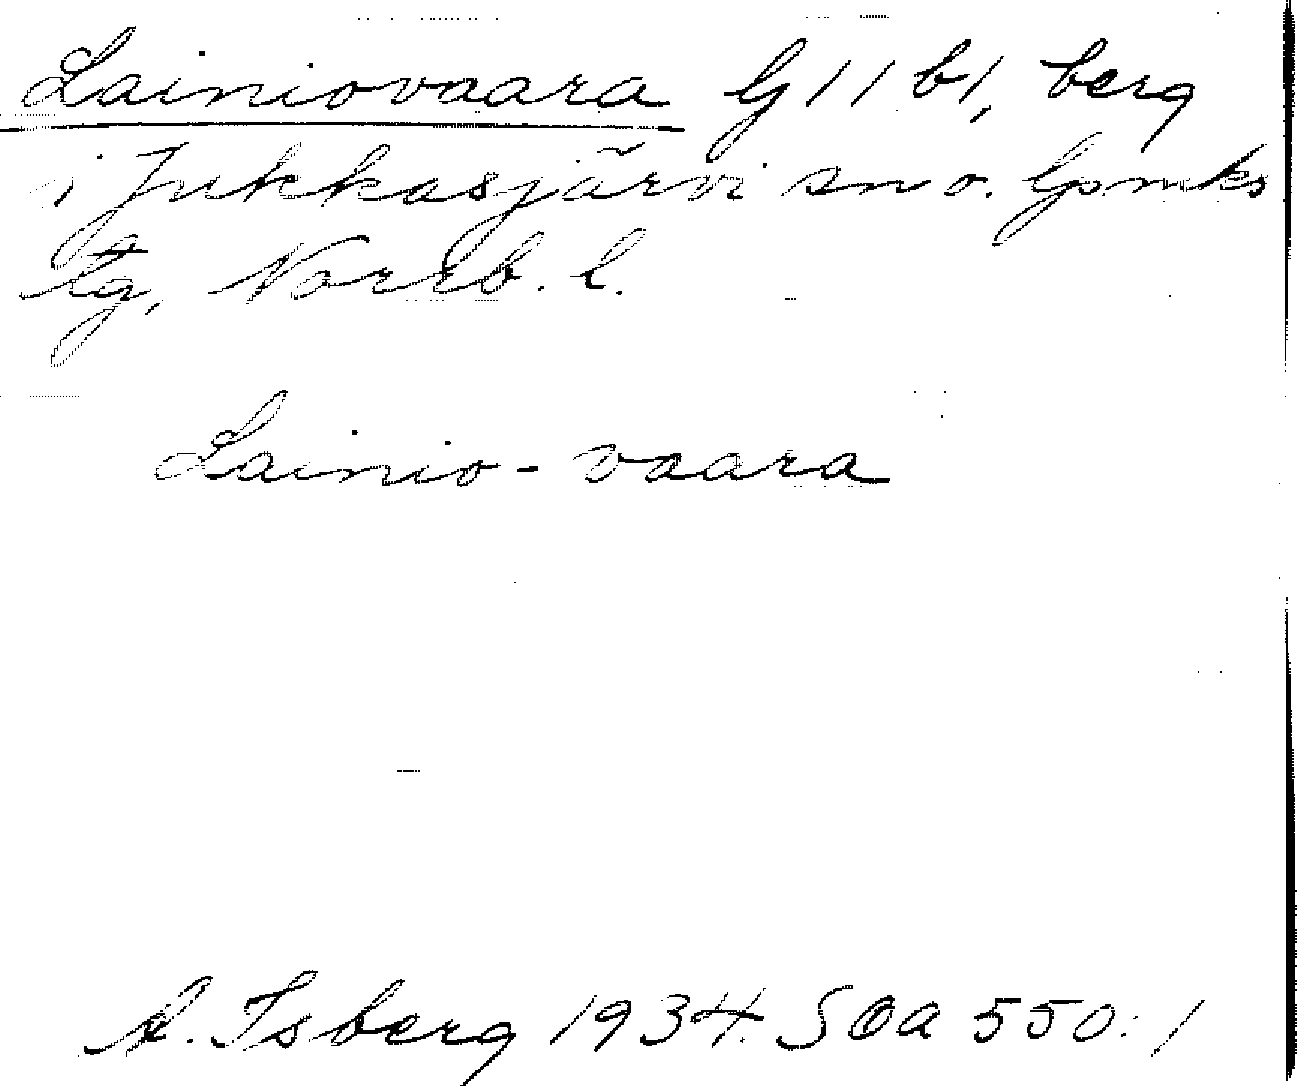 Lainiovaara G 11 b1, berg
i Jukkasjärvi sn o. Gpmks
tg, Norrb. l.
Lainio-vaara
A. Isberg 1934. SOA 550:1